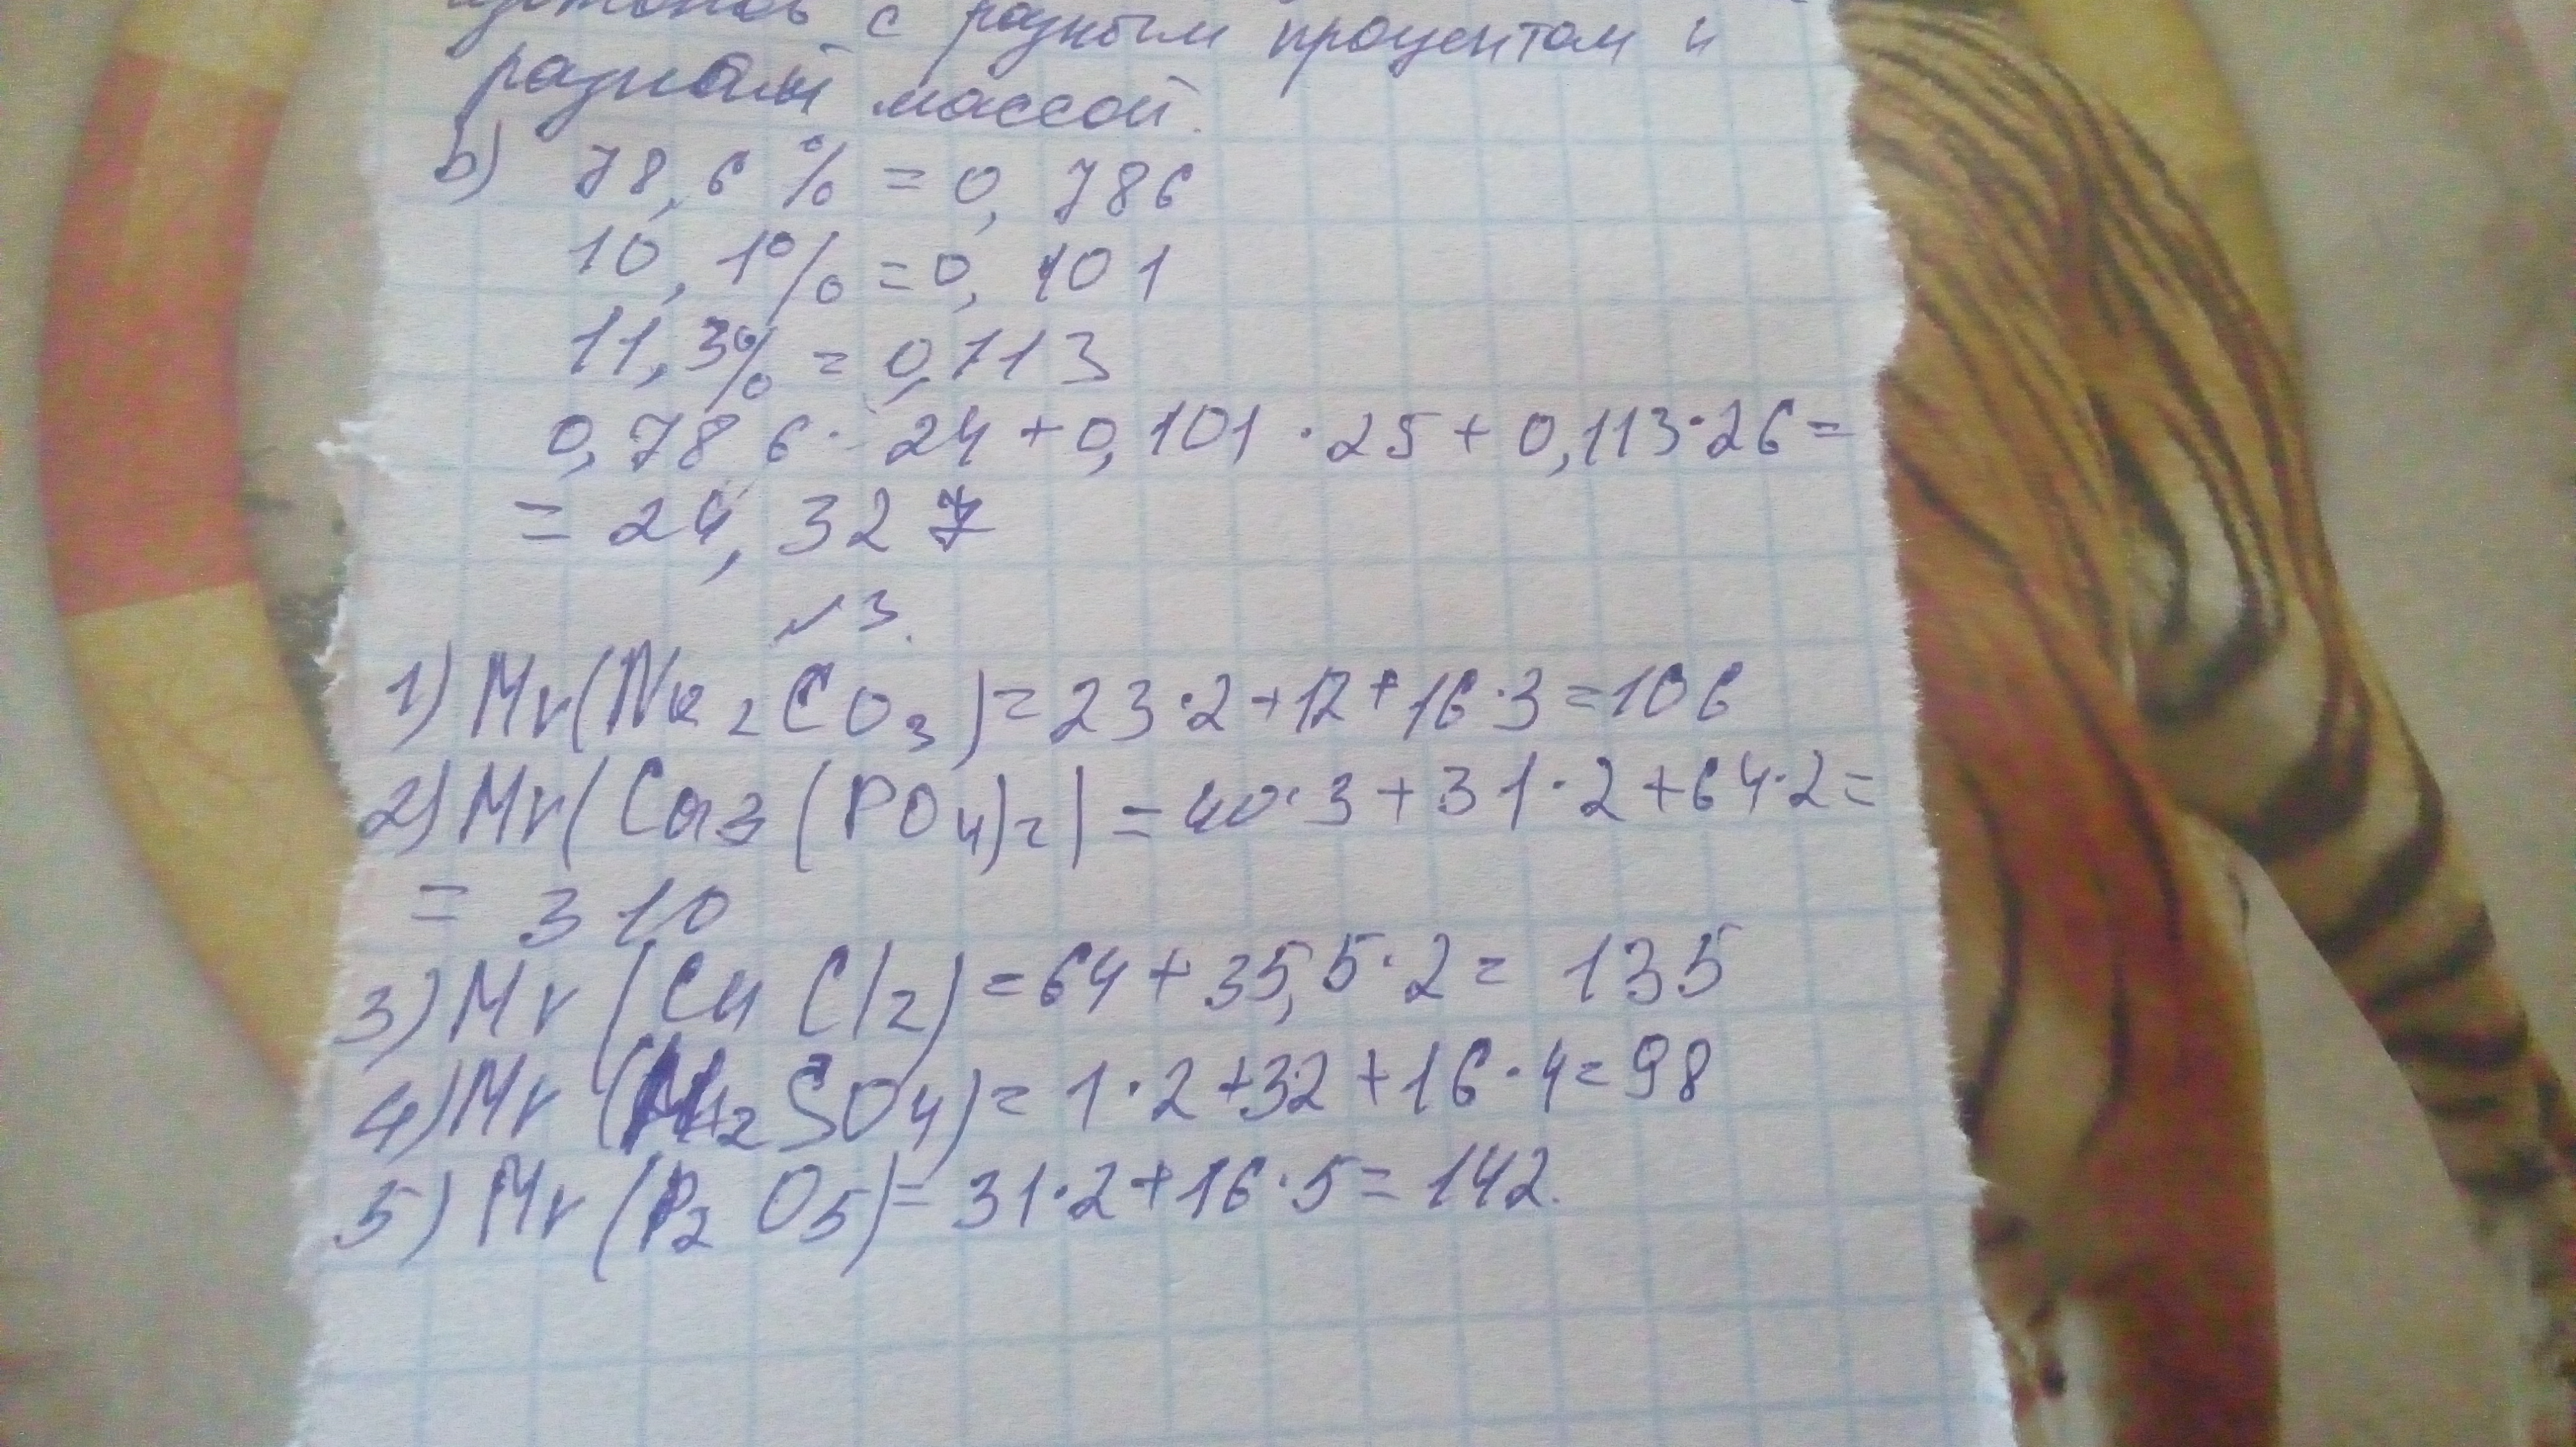 изотопов с разным процентом и
разной массой.
b) 78,6% = 0,786
10,1% = 0,101
11,3% = 0,113
0,786 · 24 + 0,101 · 25 + 0,113 · 26 =
= 24,327
№3.
1) Mr(Na2CO3) = 23·2+12+16·3=106
2) Mr(Ca3(PO4)2) = 40·3+31·2+64·2=
= 310
3) Mr(CuCl2) = 64+35,5·2= 135
4) Mr(H2SO4) = 1·2+32+16·4=98
5) Mr(P2O5) = 31·2+16·5=142.